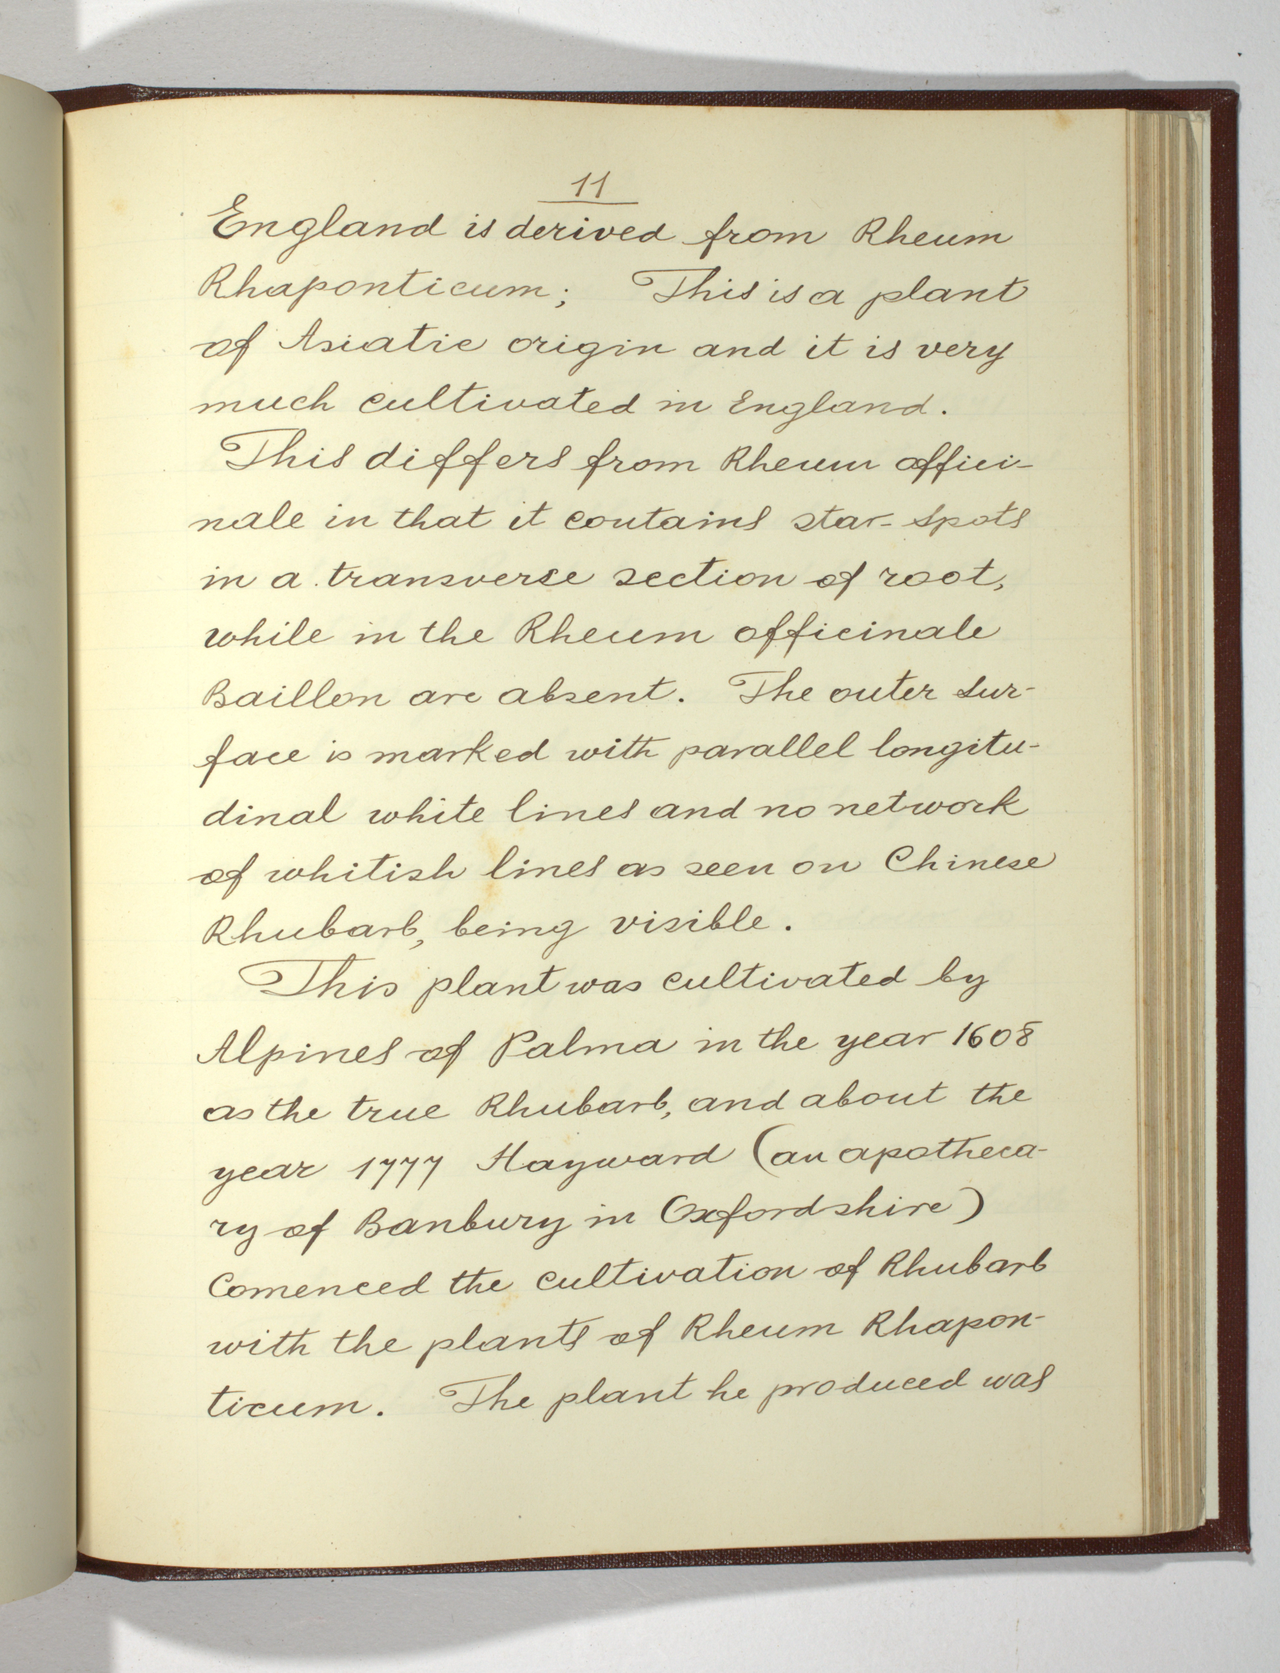 11
England is derived from Rheum
Rhaponticum; This is a plant
of Asiatic origin and it is very
much cultivated in England.
This differs from Rheum offici-
nale in that it contains star-spots
in a transverse section of root,
while in the Rheum officinale
Baillon are absent. The outer sur-
face is marked with parallel longitu-
dinal white lines and no network
of whitish lines as seen on Chinese
Rhubarb, being visible.
This plant was cultivated by
Alpines of Palma in the year 1608
as the true Rhubarb, and about the
year 1777 Hayward (an apotheca-
ry of Banbury in Oxfordshire)
Comenced the cultivation of Rhubarb
with the plants of Rheum Rhapon-
ticum. The plant he produced was